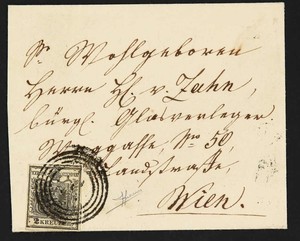 Sr. Wohlgeboren
Herrn H. v. Zahn,
bürgl. Glasverleger
No 50,
Landstraße,
Wien.
2 KREUZER